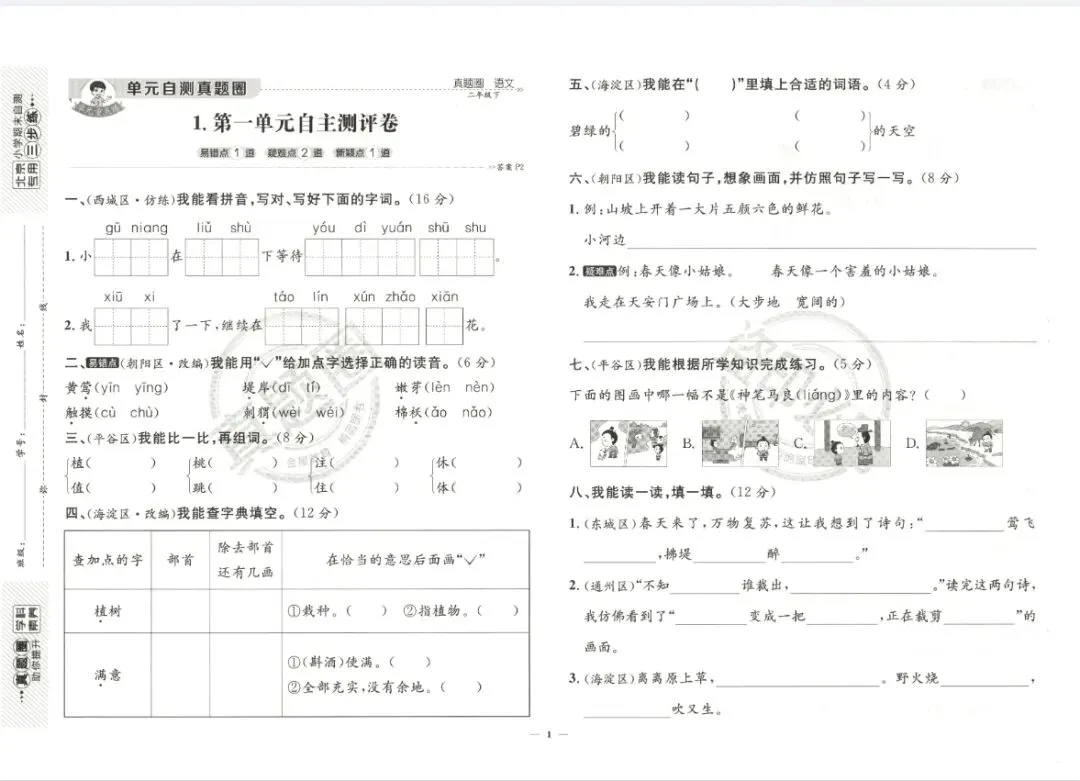 北京小学期末自测
专用三步练
姓名:
学号:
班级:
线
封
学科
助你提升
真题圈
单元自测真题圈
真题圈 语文
二年级下
1.第一单元自主测评卷
易错点 1 道 疑难点 2 道 新颖点 1 道
答案P2
一、(西城区·仿练)我能看拼音,写对、写好下面的字词。(16分)
gū niang liǔ shù yóu dì yuán shū shu
1.小 在 下等待 。
xiū xi táo lín xún zhǎo xiān
2.我 了一下,继续在 花。
二、易错点(朝阳区·改编)我能用“✓”给加点字选择正确的读音。(6分)
黄莺(yīn yīng) 堤岸(dī tí) 嫩芽(lèn nèn)
触摸(cù chù) 刺猬(wèi wéi) 棉袄(ǎo nǎo)
三、(平谷区)我能比一比,再组词。(8分)
植( ) 桃( ) 注( ) 休( )
值( ) 跳( ) 住( ) 体( )
四、(海淀区·改编)我能查字典填空。(12分)
查加点的字 部首 除去部首还有几画 在恰当的意思后面画“✓”
植树 ①栽种。( ) ②指植物。( )
满意 ①(斟酒)使满。( )
②全部充实,没有余地。( )
五、(海淀区)我能在“( )”里填上合适的词语。(4分)
( ) ( )
碧绿的 的天空
( ) ( )
六、(朝阳区)我能读句子,想象画面,并仿照句子写一写。(8分)
1.例:山坡上开着一大片五颜六色的鲜花。
小河边
2.疑难点例:春天像小姑娘。 春天像一个害羞的小姑娘。
我走在天安门广场上。(大步地 宽阔的)
七、(平谷区)我能根据所学知识完成练习。(5分)
下面的图画中哪一幅不是《神笔马良(liáng)》里的内容?( )
A. B. C. D.
八、我能读一读,填一填。(12分)
1.(东城区)春天来了,万物复苏,这让我想到了诗句:“________莺飞
________,拂堤________醉________。”
2.(通州区)“不知________谁裁出,________。”读完这两句诗,
我仿佛看到了“________变成一把________,正在裁剪________”的
画面。
3.(海淀区)离离原上草,________。野火烧________,
________吹又生。
— 1 —